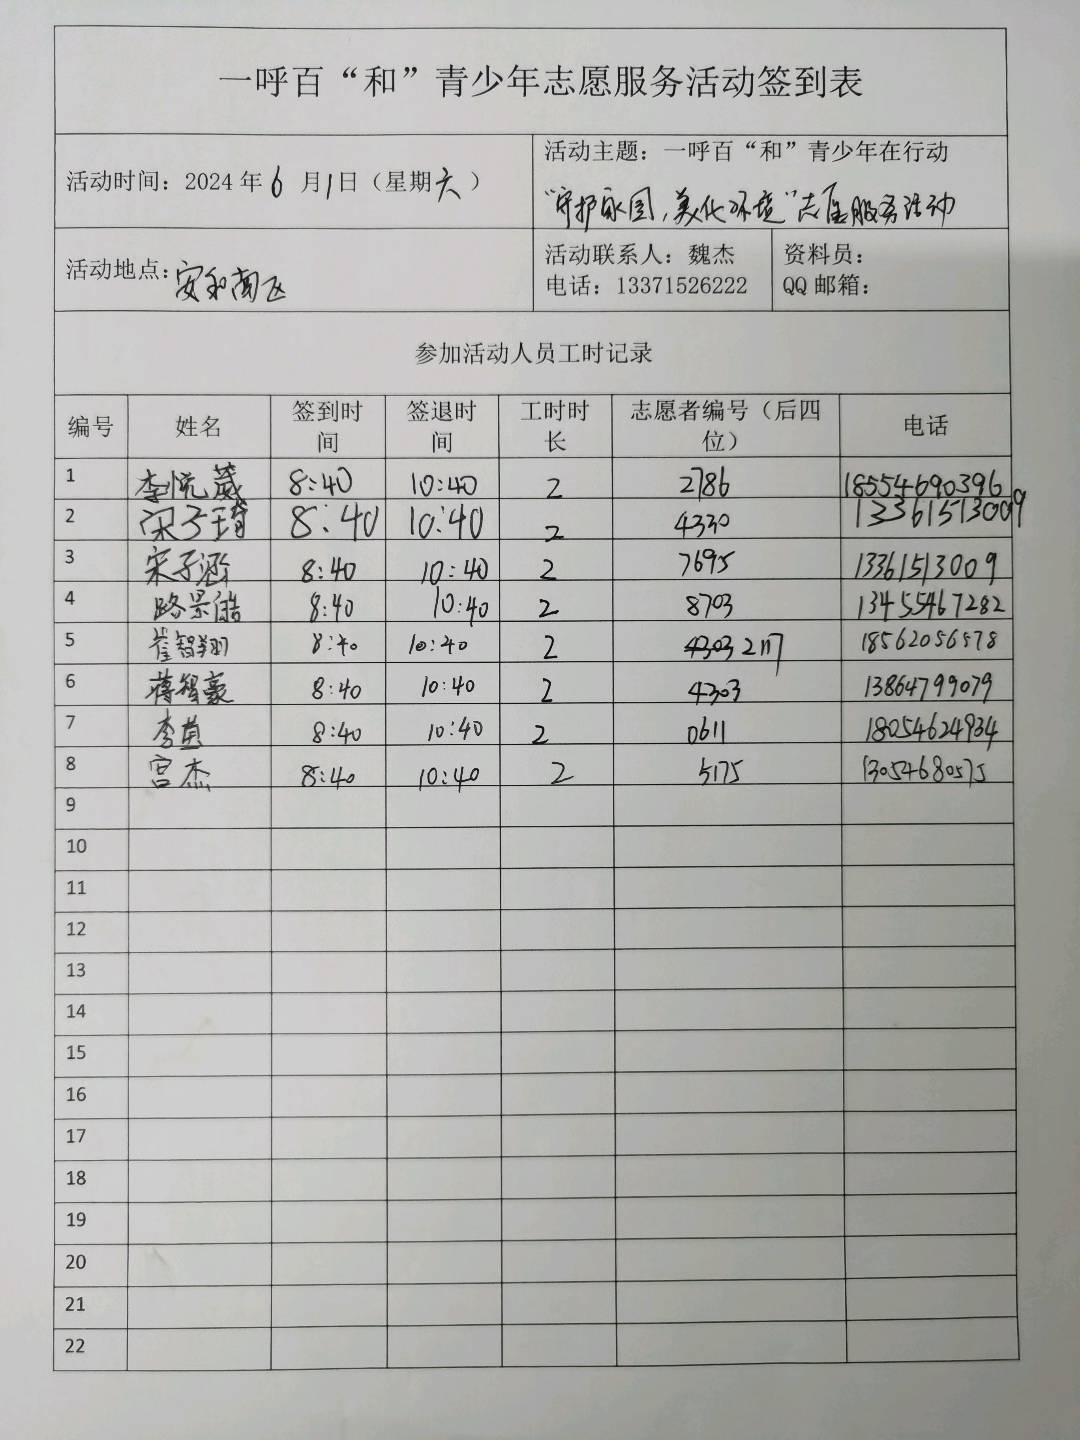 一呼百“和”青少年志愿服务活动签到表
活动时间：2024年6月1日（星期六）
活动主题：一呼百“和”青少年在行动
“守护家园，美化环境”志愿服务活动
活动地点：安和南区
活动联系人：魏杰
电话：13371526222
资料员：
QQ邮箱：
参加活动人员工时记录
编号 姓名 签到时间 签退时间 工时时长 志愿者编号（后四位） 电话
1 李悦葳 8:40 10:40 2 2786 18554690396
2 宋子琦 8:40 10:40 2 4330 13361513009
3 宋子涵 8:40 10:40 2 7695 13361513009
4 路景皓 8:40 10:40 2 8703 13455467282
5 崔智翔 8:40 10:40 2 4303 2117 18562056578
6 蒋智豪 8:40 10:40 2 4303 13864799079
7 李 8:40 10:40 2 0611 18054624934
8 宫杰 8:40 10:40 2 5175 13054680575
9
10
11
12
13
14
15
16
17
18
19
20
21
22